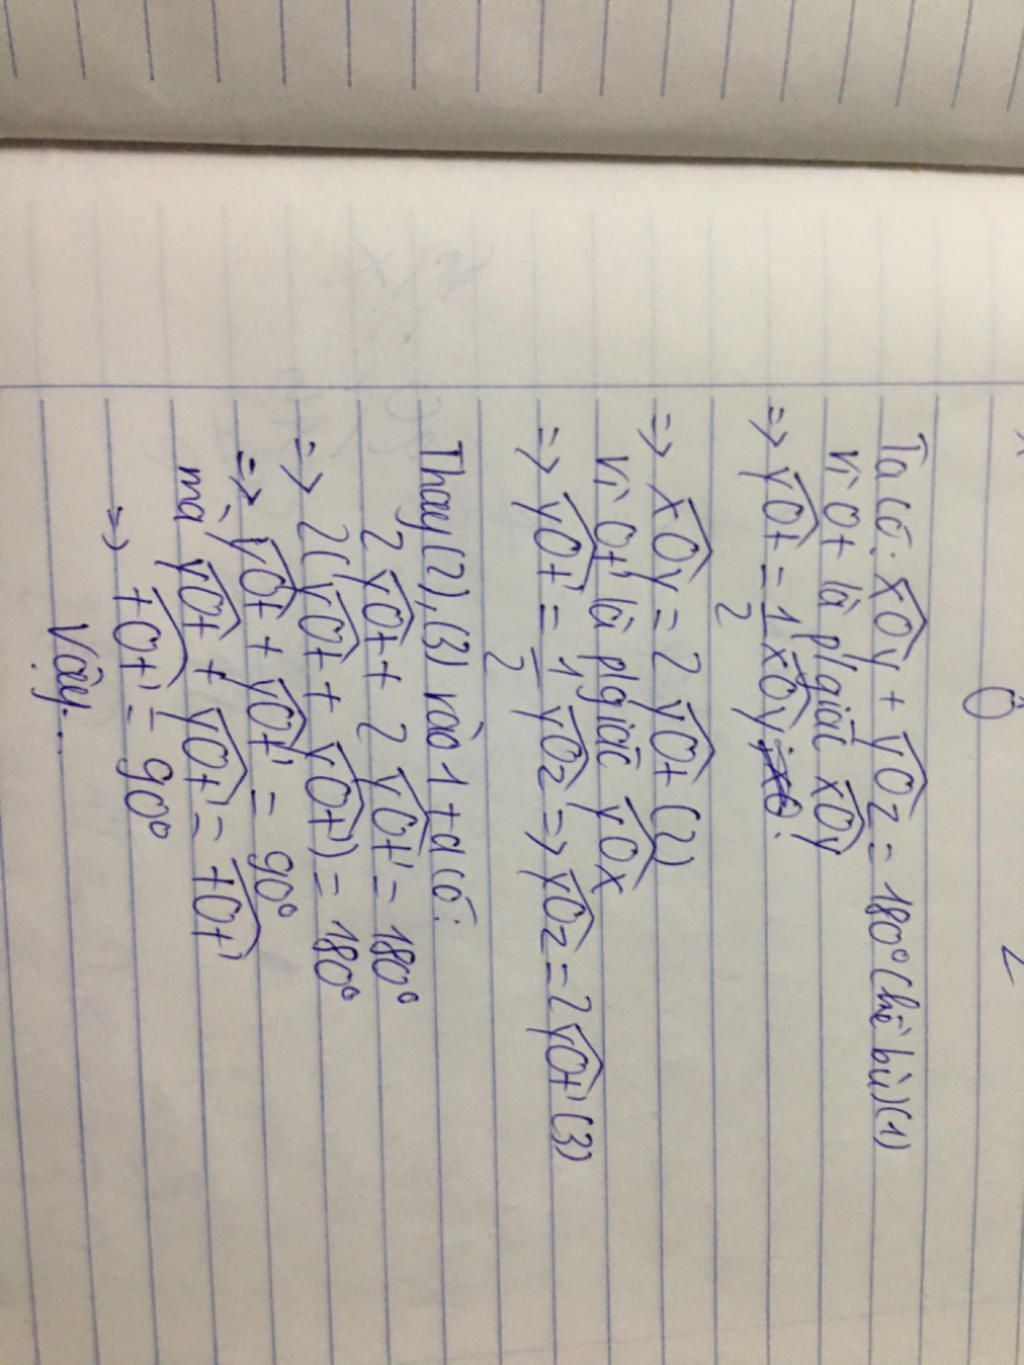 O
z
Ta có: xOy + yOz = 180° (kề bù) (1)
Vì Ot là p/giác xOy
=> yOt = 1/2 xOy
=> xOy = 2 yOt (2)
Vì Ot' là p/giác yOx
=> yOt' = 1/2 yOz => yOz = 2 yOt' (3)
Thay (2), (3) vào 1 ta có:
2 yOt + 2 yOt' = 180°
=> 2( yOt + yOt') = 180°
=> yOt + yOt' = 90°
mà yOt + yOt' = tOt'
=> tOt' = 90°
Vậy...